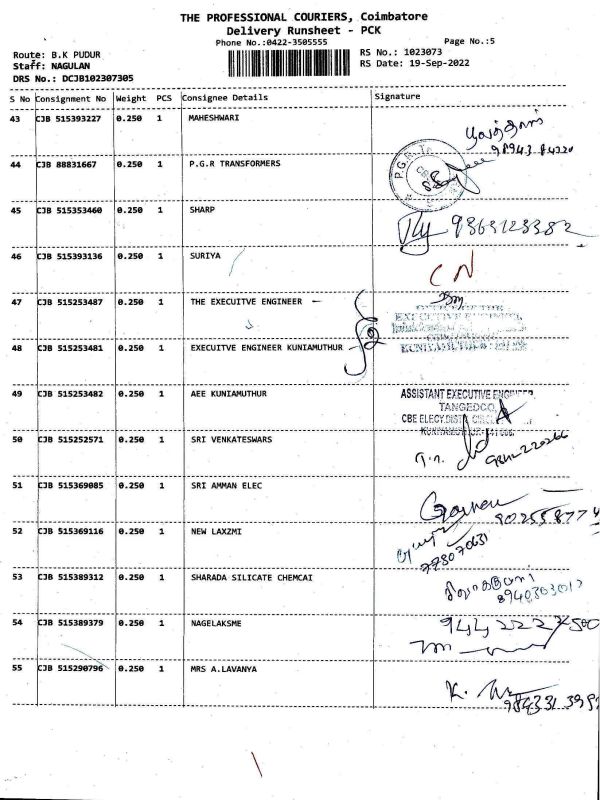 THE PROFESSIONAL COURIERS, Coimbatore
Delivery Runsheet - PCK
Phone No.:0422-3505555
Page No.:5
Route: B.K PUDUR
RS No.: 1023073
Staff: NAGULAN
RS Date: 19-Sep-2022
DRS No.: DCJB102307305
S No Consignment No Weight PCS Consignee Details Signature
43 CJB 515393227 0.250 1 MAHESHWARI
44 CJB 88831667 0.250 1 P.G.R TRANSFORMERS
P.G.R.
45 CJB 515353460 0.250 1 SHARP
46 CJB 515393136 0.250 1 SURIYA
CN
47 CJB 515253487 0.250 1 THE EXECUITVE ENGINEER
48 CJB 515253481 0.250 1 EXECUITVE ENGINEER KUNIAMUTHUR
49 CJB 515253482 0.250 1 AEE KUNIAMUTHUR
ASSISTANT EXECUTIVE ENGINEER,
TANGEDCO,
50 CJB 515252571 0.250 1 SRI VENKATESWARS
51 CJB 515369085 0.250 1 SRI AMMAN ELEC
52 CJB 515369116 0.250 1 NEW LAXZMI
773070631
53 CJB 515389312 0.250 1 SHARADA SILICATE CHEMCAI
54 CJB 515389379 0.250 1 NAGELAKSME
55 CJB 515290796 0.250 1 MRS A.LAVANYA